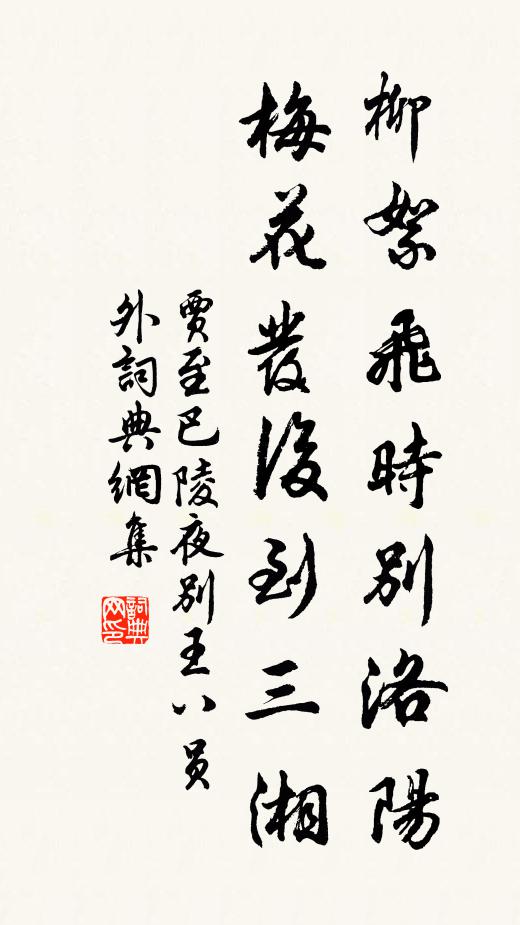 柳絮飛時別洛陽
梅花發後到三湘
賈至巴陵夜別王八員
外詞典網集
詞典網印